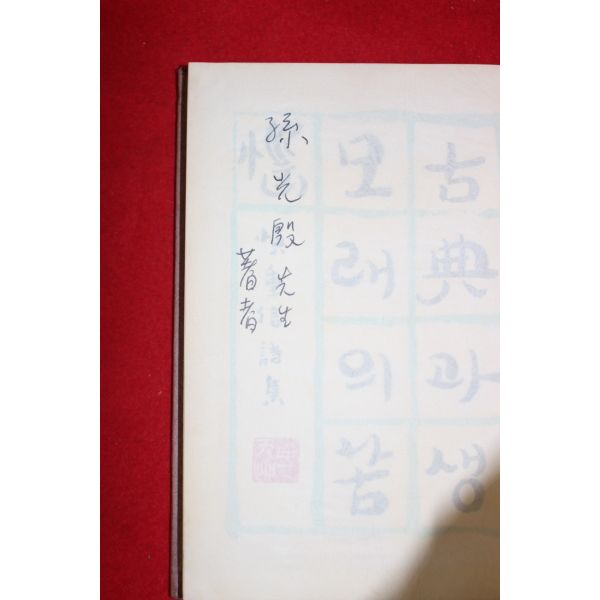 孫光殷先生
著者
古典과생
모래의苦
惱
詩集